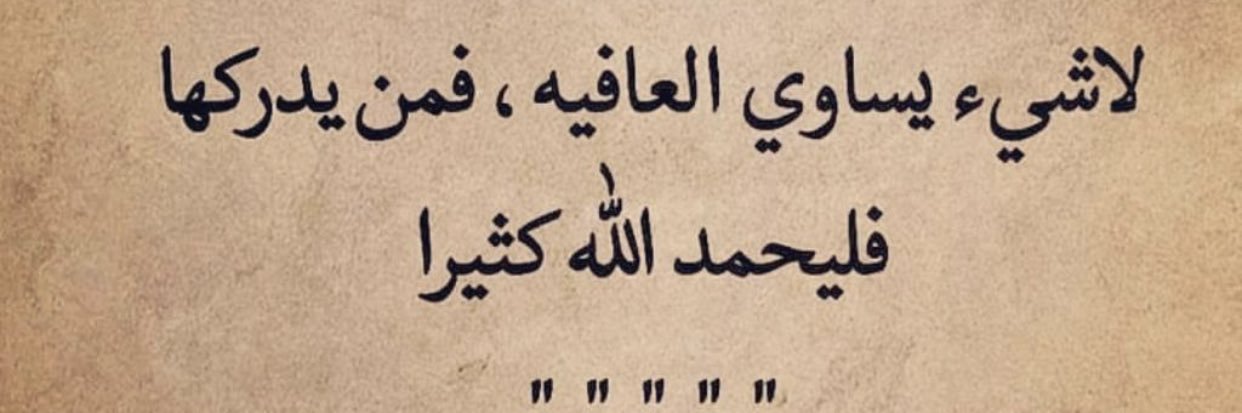 لاشيء يساوي العافيه ، فمن يدركها
فليحمد الله كثيرا
" " " " "